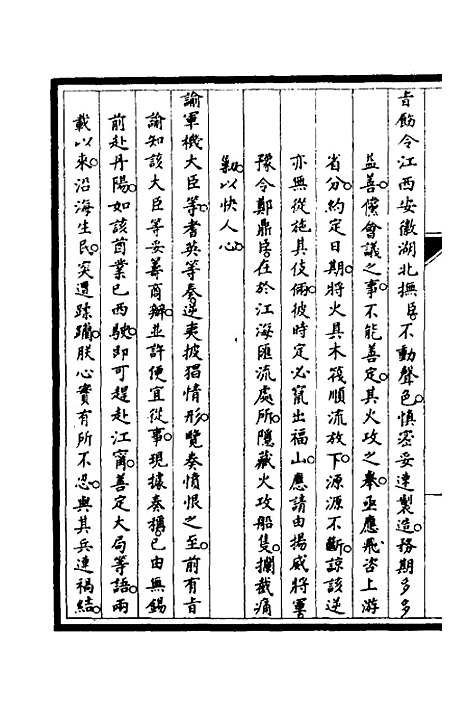 旨飭令江西安徽湖北撫臣不動聲色慎密妥速製造務期多多
益善儻會議之事不能善定其火攻之舉亟應飛咨上游
省分約定日期將火具木筏順流放下源源不斷諒該逆
亦無從施其伎倆彼時定必竄出福山應請由揚威將軍
豫令鄭鼎臣在於江海匯流處所隱藏火攻船隻攔截痛
剿以快人心
諭軍機大臣等耆英等奏逆夷披猖情形覽奏憤恨之至前有旨
諭知該大臣等妥籌商辦並許便宜從事現據奏稱已由無錫
前赴丹陽如該酋業已西駛即可趲赴江甯善定大局等語兩
載以來沿海生民突遭蹂躪朕心實有所不忍與其兵連禍結